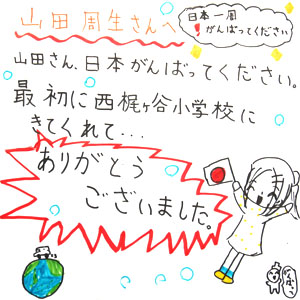 山田 周生さんへ
日本一周
がんばってください
山田さん、日本がんばってください。
最初に西梶ヶ谷小学校に
きてくれて・・・
ありがとう
ございました。